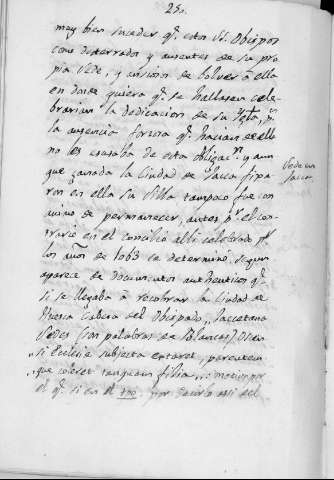 25.
muy bien suceder q.e estos SS. Obispos
como desterrados y ausentes de su pro
pia Sede, y ansiosos de bolver à ella
en donde quiera q.e se hallasen cele-
brarian la dedicacion de su Ygl.a, p.s
la ausencia forzosa q.e hacian de ella
no les escusaba de esta obligac.n, y aun
que ganada la Ciudad de Jaca fixa
ron en ella su Silla tampoco fue con
animo de permanecer, antes p.r el con-
trario en el concilio alli celebrado p.r
los años de 1063 se determinó, segun
aparece de documentos authenticos q.e
si se llegaba á recobrar la Ciudad de
Huesca Cabeza del Obispado, Jaccetana
Sedes (son palabras de Blancas) Oscen-
si Ecclesie subjecta extaret, parentem
que coleret tanquam filia, motivo por
el q.e si en el 
Sede en
Jaca.